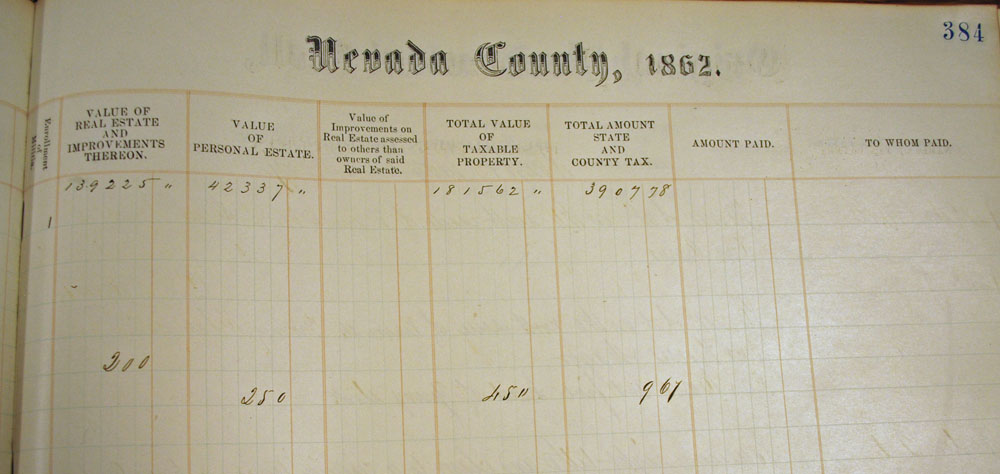 384
Nevada County, 1862.
Enrollment of Militia.
VALUE OF REAL ESTATE AND IMPROVEMENTS THEREON.
VALUE OF PERSONAL ESTATE.
Value of Improvements on Real Estate assessed to others than owners of said Real Estate.
TOTAL VALUE OF TAXABLE PROPERTY.
TOTAL AMOUNT STATE AND COUNTY TAX.
AMOUNT PAID.
TO WHOM PAID.
139225 „ 42337 „ 181562 „ 3907 78
1
200
250 450 9 67